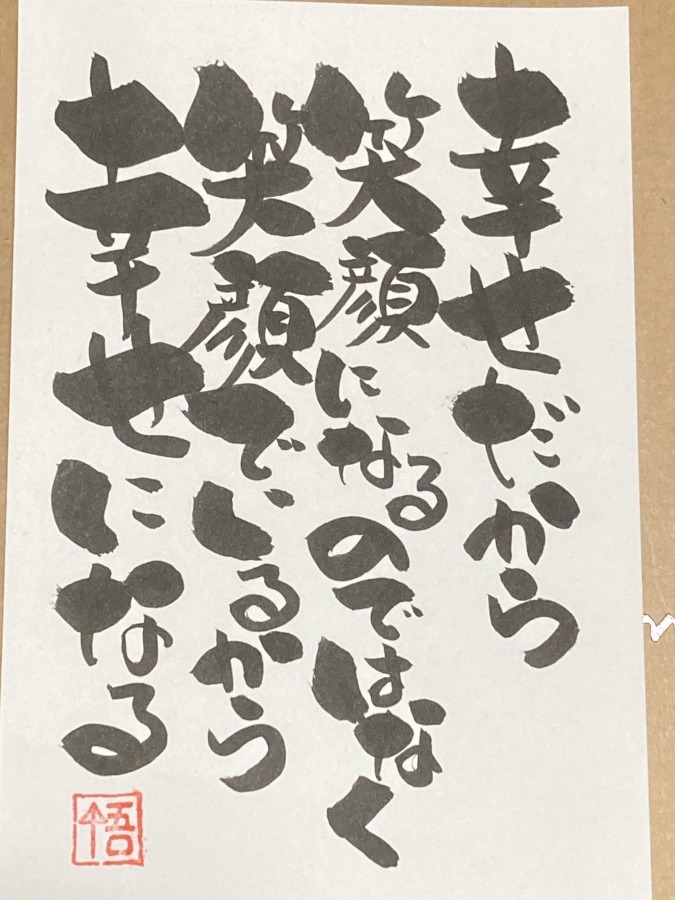 幸せだから
笑顔になるのではなく
笑顔でいるから
幸せになる
悟